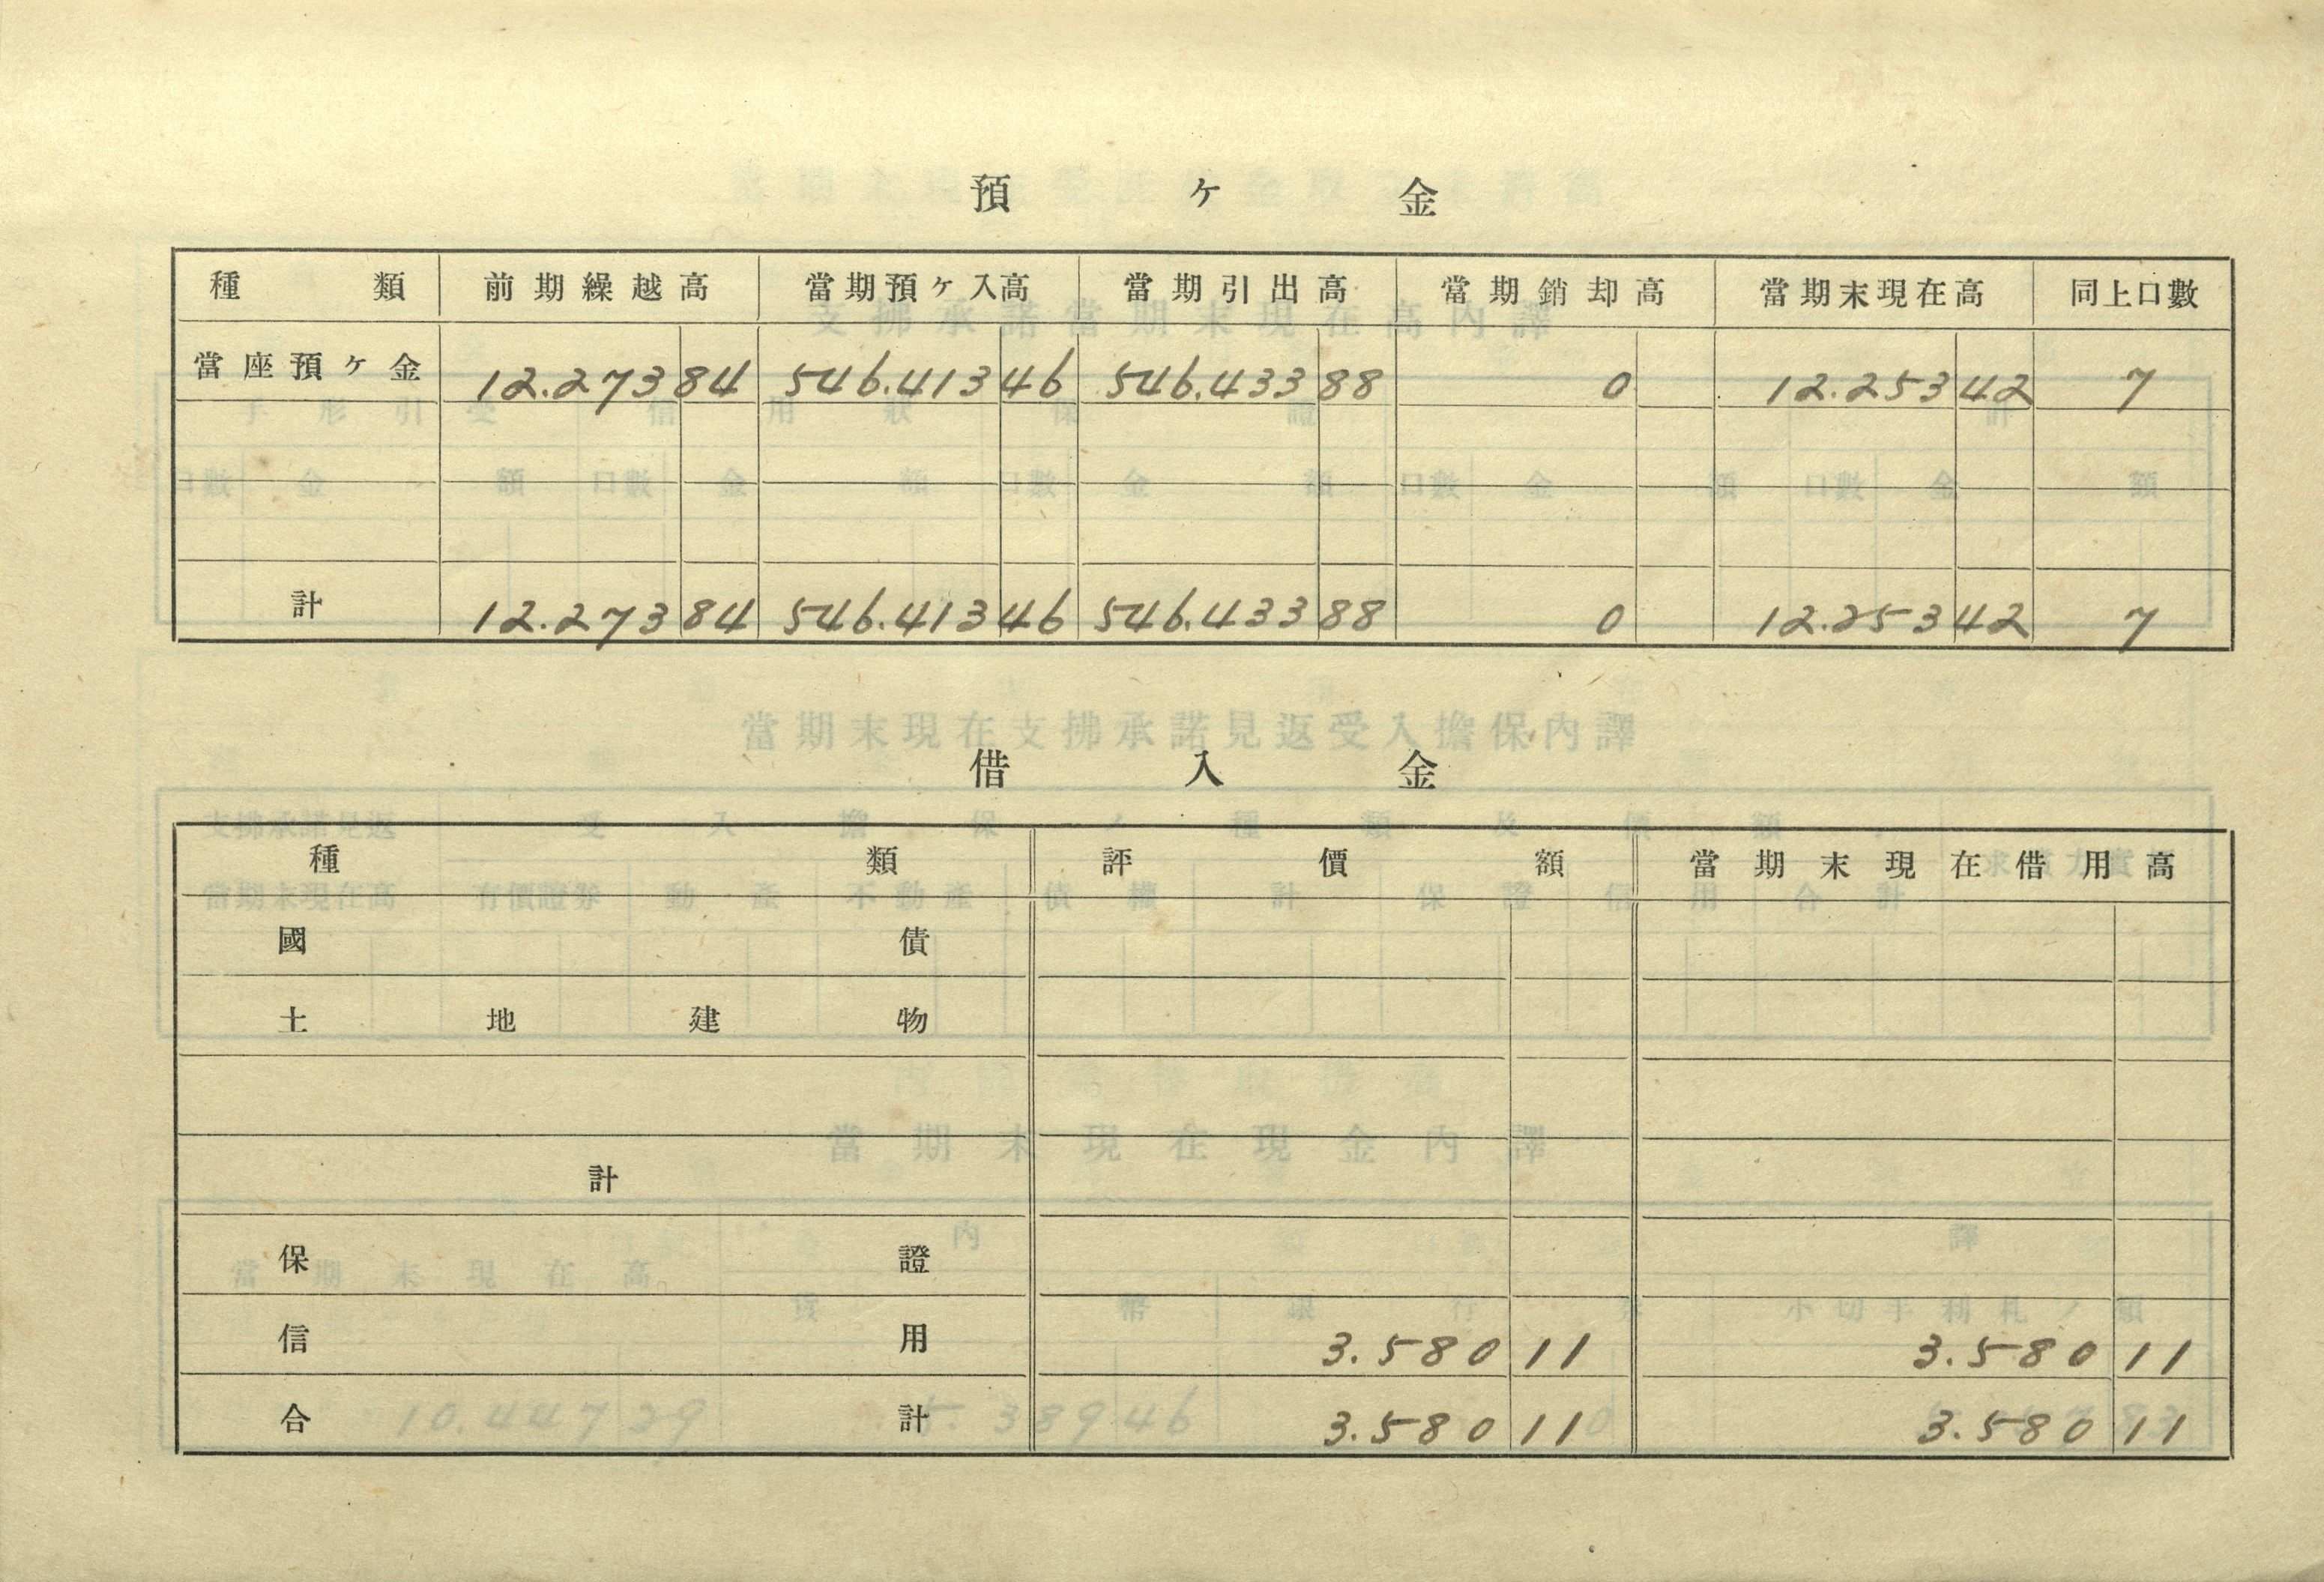 預ヶ金
種類 前期繰越高 當期預ヶ入高 當期引出高 當期銷却高 當期末現在高 同上口數
當座預ヶ金 12.273 84 546.413 46 546.433 88 0 12.253 42 7
計 12.273 84 546.413 46 546.433 88 0 12.253 42 7
借入金
種類 評價額 當期末現在借用高
國債
土地建物
計
保證
信用 3.580 11 3.580 11
合計 3.580 11 3.580 11